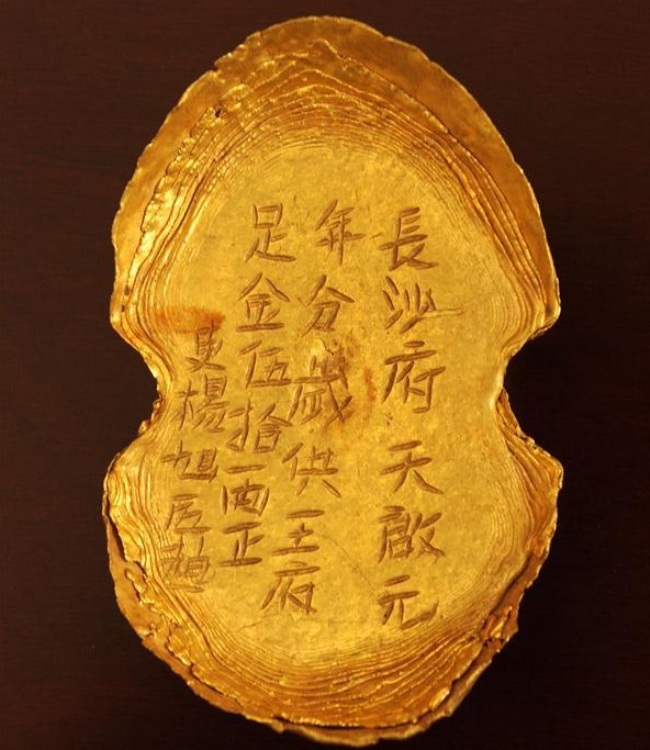 長沙府天啟元
年分歲供王府
足金伍拾兩正
吏楊旭匠